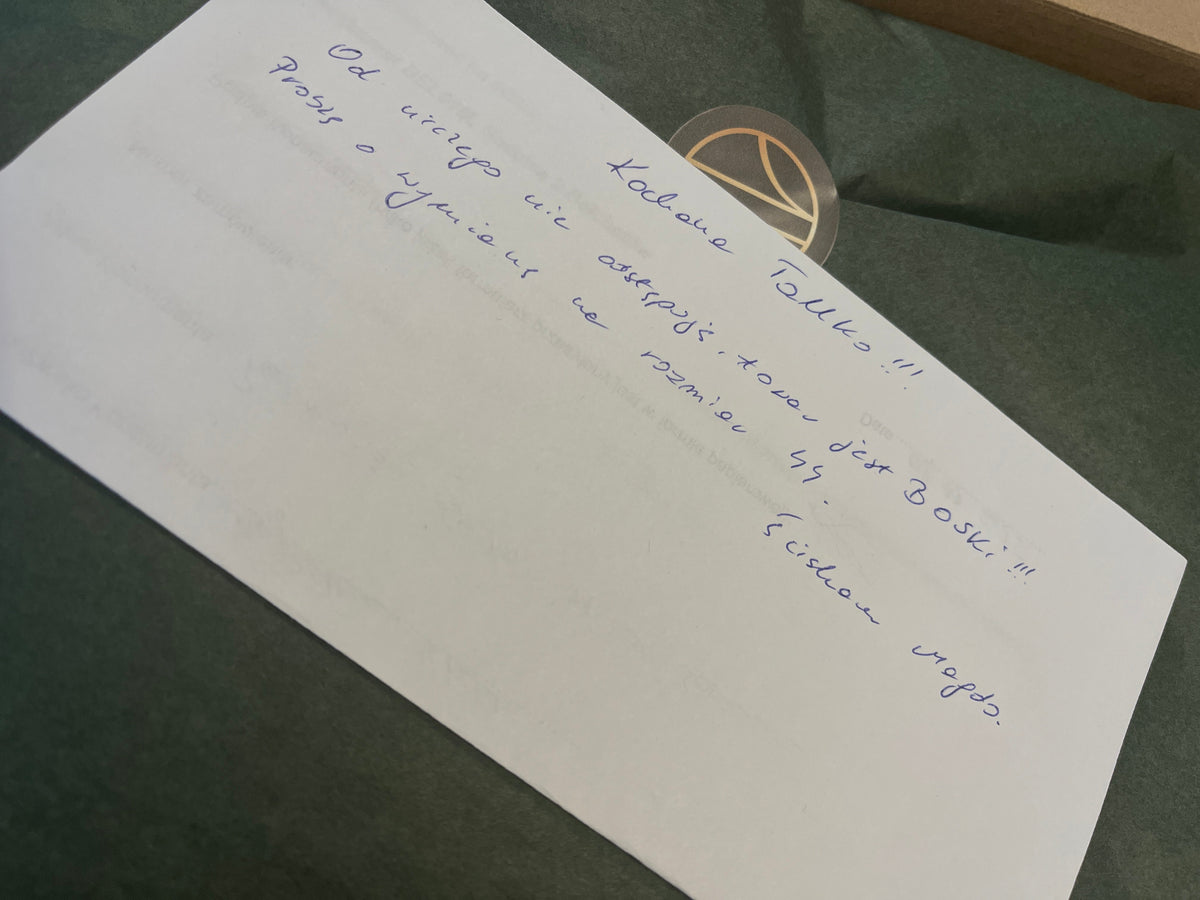 Kochana Tomko!!!
Od niczego nie odstępuję, towar jest BOSKI!!!
Proszę o wymianę na rozmiar 44.
Ściskam Magda.